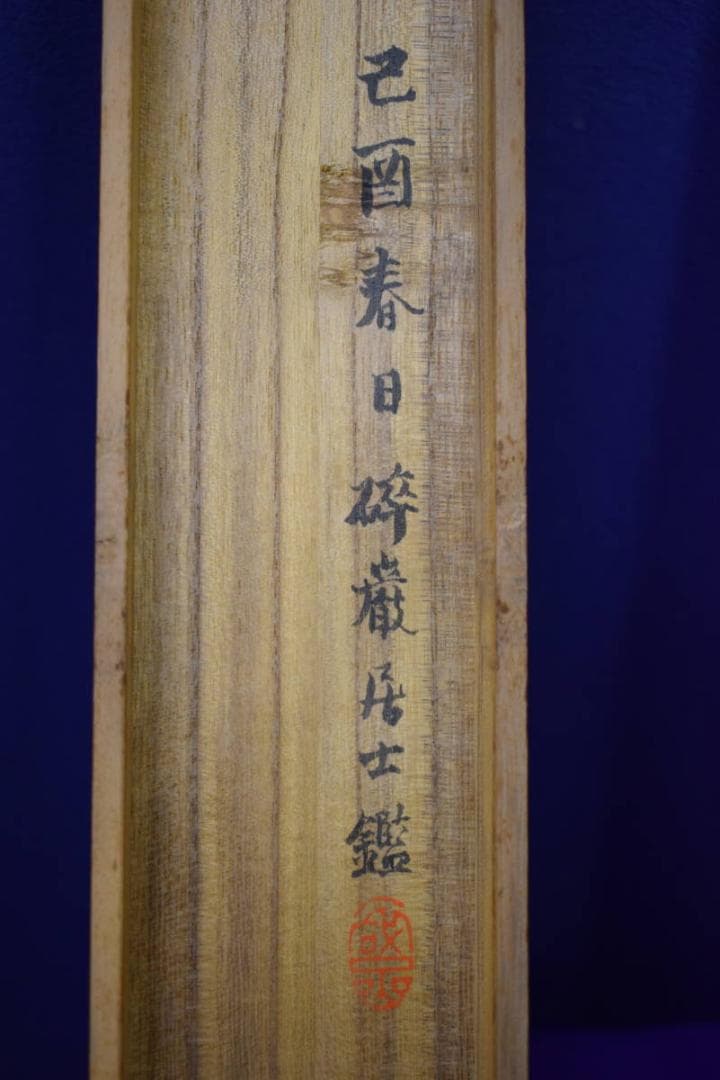 己酉春日碎巖居士鑑